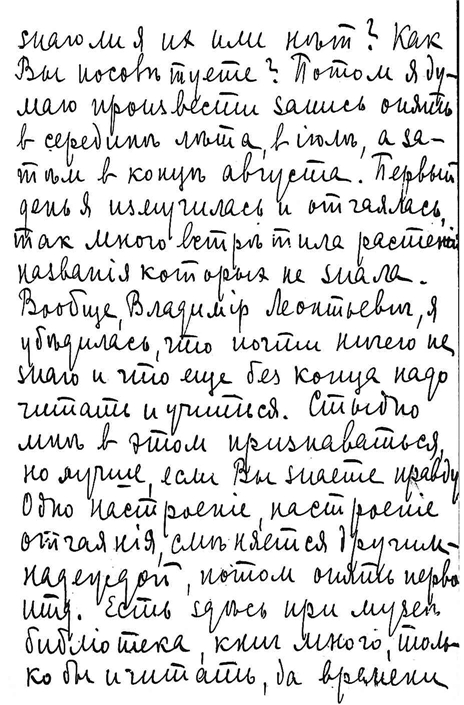 знаю ли я их или нѣт? Как
Вы посовѣтуете? Потом я ду-
маю произвести запись опять
в серединѣ лѣта, в іюлѣ, а за-
тѣм в концѣ августа. Первый
день я измучилась и отчаялась,
так много встрѣтила растеній
названія которых не знала.
Вообще, Владимір Леонтьевич, я
убѣдилась, что почти ничего не
знаю и что еще без конца надо
читать и учиться. Стыдно
мнѣ в этом признаваться,
но лучше, если Вы знаете правду
Одно настроеніе, настроеніе
отчаянія, смѣняется другим-
надеждой, потом опять перво
Есть здѣсь при музеѣ
библіотека, книг много, толь-
ко бы и читать, да времени